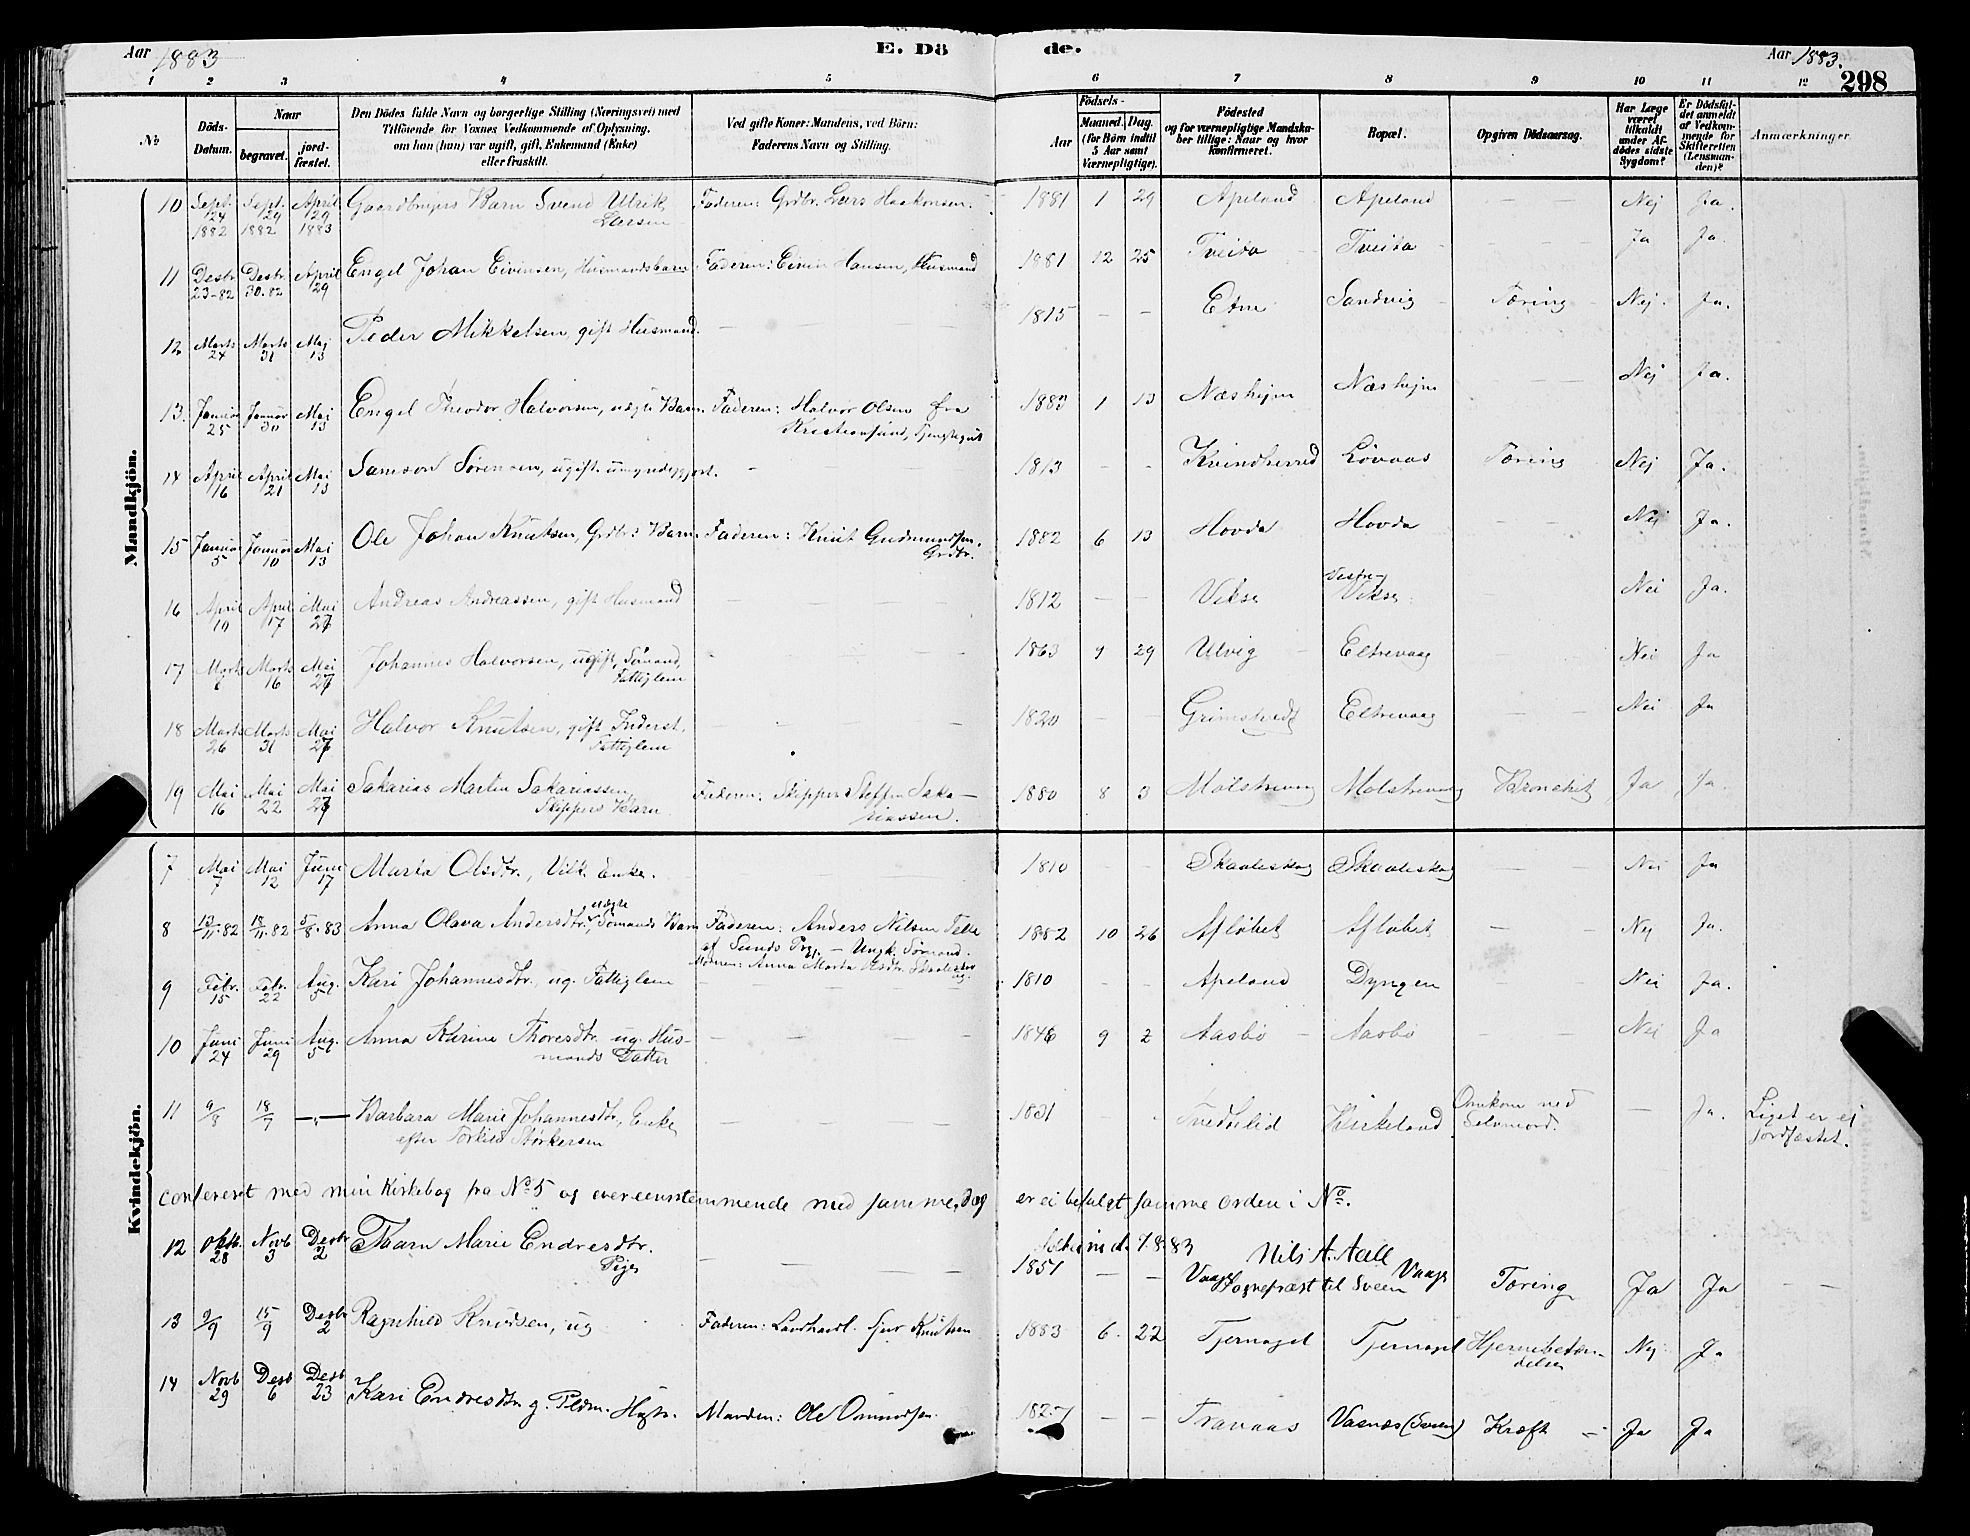 Aar 1883 E. Dö de. Aar 1883. 298
1 2 3 4 5 6 7 8 9 10 11 12
№ Döds-Datum. Naar begravet. jordfæstet. Den Dödes fulde Navn og borgerlige Stilling (Næringsvei) med Tilföiende for Voxnes Vedkommende af Oplysning, om han (hun) var ugift, gift, Enkemand (Enke) eller fraskilt. Ved gifte Koner: Mandens, ved Börn: Faderens Navn og Stilling. Födsels- Aar Maaned. Dag. (for Börn indtil 5 Aar samt Værnepligtige). Födested og for værnepligtige Mandskaber tillige: Naar og hvor konfirmeret. Bopæl. Opgiven Dödsaarsag. Har Læge været tilkaldt under Afdödes sidste Sygdom? Er Dödsfaldet anmeldt af Vedkommende for Skifteretten (Lensmanden)? Anmærkninger
Mandkjön.
10 Sept. 24 1882 Sept. 29 1882 April 29 1883 Gaardbrugers Barn Svend Ulrik Larsen Faderen: Grdbr. Lars Haakonsen. 1881 1 29 Apeland Apeland — — Nej Ja.
11 Destr. 23-82 Destr. 30.82 April 29 Engel Johan Eivinsen, Husmandsbarn Faderen: Eivin Hansen, Husmand 1881 12 25 Tveita Tveita — — Ja Ja.
12 Marts 24 Marts 31 Maj 13 Peder Mikkelsen, gift Husmand. — — 1815 — — Etne Sandvig Tæring Nej. Ja.
13. Januar 25 Januar 30 Mai 13 Engel Theodor Halvorsen, uægte Barn. Faderen: Halvor Olsen fra Kristiansund, Tjenestegut 1883 1 13 Næshejm Næshejm — — Nej Ja.
14 April 16 April 21 Mai 13 Samson Sørensen, ugift umyndiggjort. — 1813 — — Kvindherred Lövaas Tæring Nej Ja.
15 Januar 5 Januar 10 Mai 13 Ole Johan Knutsen, Grdbr: Barn Faderen: Knut Gudmundsen, Grdbr. 1882 6 13 Hovda Hovda — — Nei Ja.
16 April 10 April 17 Mai 27 Andreas Andreassen, gift Husmand — — — 1812 — — Vikse Vestre Vikse — Nei Ja.
17 Marts 6 Marts 16 Mai 27 Johannes Halvorsen, ugift, Sømand, Fattiglem — — — 1863 9 29 Ulvig Eltrevaag — — Nei Ja
18 Marts 26 Marts 31 Mai 27 Halvor Knutsen, gift Inderst, Fattiglem — — — 1820 — — Grimstvedt Eltrevaag — — Nei Ja
19 Mai 16 Mai 22 Mai 27 Sakarias Martin Sakariassen, Skippers Barn Faderen: Skipper Steffen Saka- riassen. 1880 8 3 Molstrevaag Molstrevaag Bronchit Ja Ja.
Kvindekjön.
7 Mai 7 Mai 12 Juni 17 Marta Olsdtr., Vilk. Enke. — 1810 — — Skaaleskog Skaaleskog — — Nei Ja
8 13/11.82 18/11.82 5/8.83 Anna Olava Andersdtr., uægte Sømands Barn Faderen: Anders Nilsen Telle af Sunds Prgj. — Ungk. Sømand. Moderen: Anna Marta Olsdtr. Skaaleskog. 1882 10 26 Afløbet Afløbet — — Nej Ja.
9 Febr. 15 Febr. 22 Aug. 5 Kari Johannesdtr. ug. Fattiglem — — — 1810 — — Apeland Dyngen — — Nei Ja.
10 Juni 24 Juni 29 Aug. 5 Anna Karine Thoresdtr. ug. Hus- mands Datter — — — 1846 9 2 Aasbö — Aasbö — — Nei Ja
11 9/8 18/7 —"— Barbara Marie Johannesdtr, Enke efter Torkild Størkersen — — — 1831 Tvedtelid Kirkeland Omkom ved Selvmord. — Ja. Liget er ei jordfæstet.
confereret med min Kirkebog fra No 5 og overeensstemmende med samme, dog er ei befulgt samme orden i No.
d. 7.8.83
Nils A. Aall
Sognepræst til Sveen
12 Oktb. 28 Novb 3 Desbr 2 Thorn Marie Endresdtr. Pige — — — 1851 — — Vaage Vaage Tæring Ja Ja — —
13 9/9 15/9 Desbr 2 Ragnhild Knudsen, ug Faderen: Landhandl. Sjur Knutsen 1883 6. 22 Tjernagel Tjernagel Hjernebetæn- delse Nej Ja
14 Novb 29 Desb 6 Desb 23 Kari Endresdtr g. Pldm. Hustr. Manden: Ole Omundsen. 1827 — — Travaas Vasnæs (Sveen) Kræft — Ja Ja